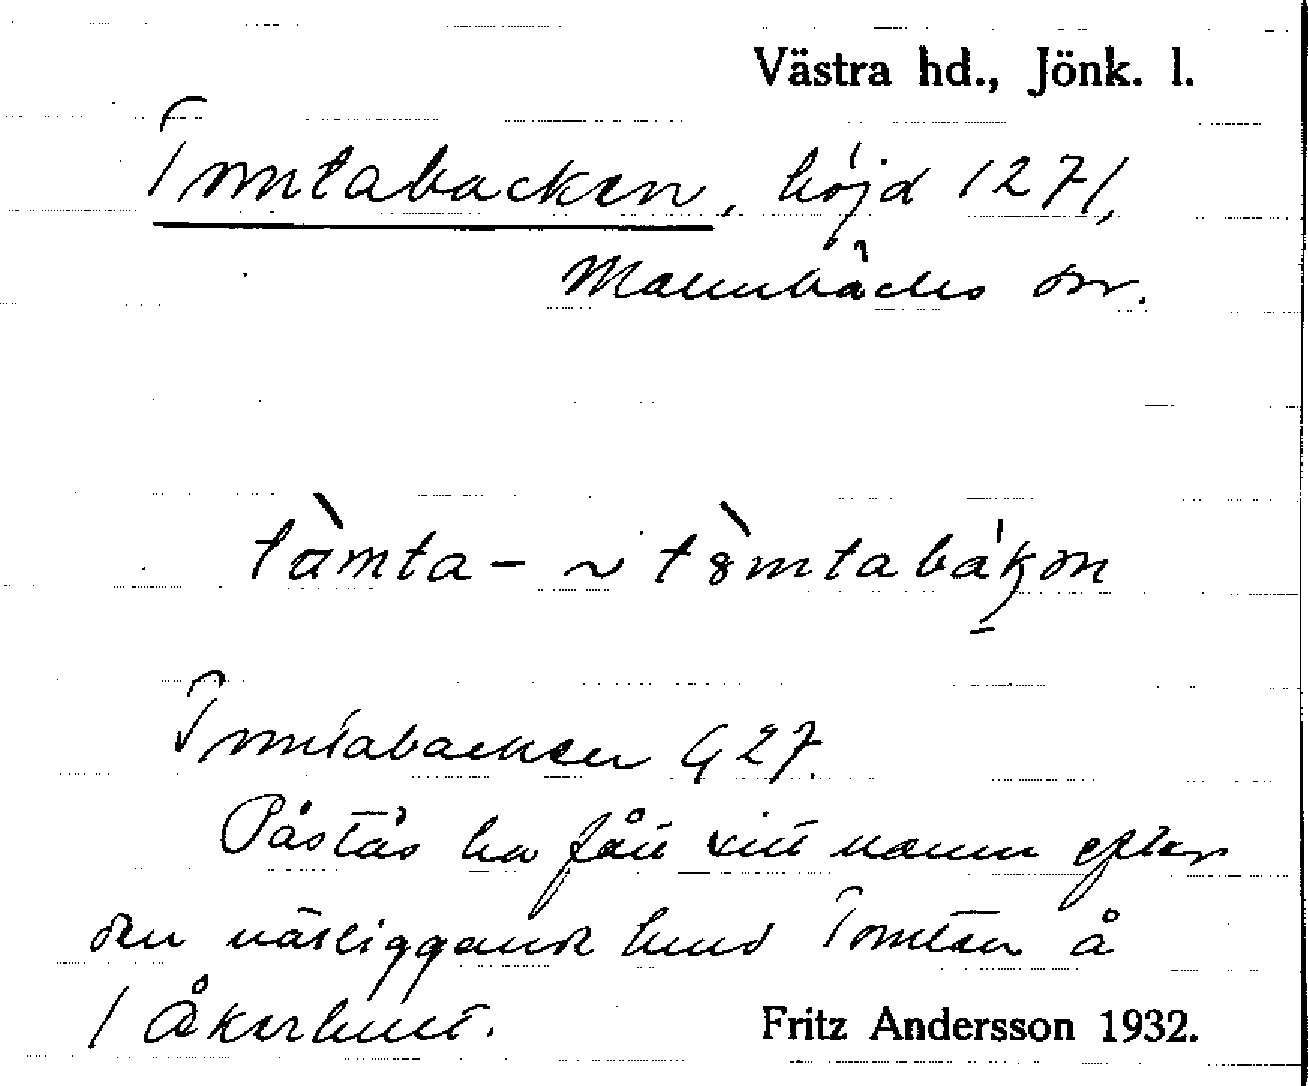 Västra hd., Jönk. l.
Tomtabacken, höjd 1271,
Malmbäcks sn.
tàmta- ~ tòmtabákɜn
Tomtabacken G 27.
Påstås ha fått sitt namn efter
den närliggande lund Tomten å
1 Åkerlund.
Fritz Andersson 1932.